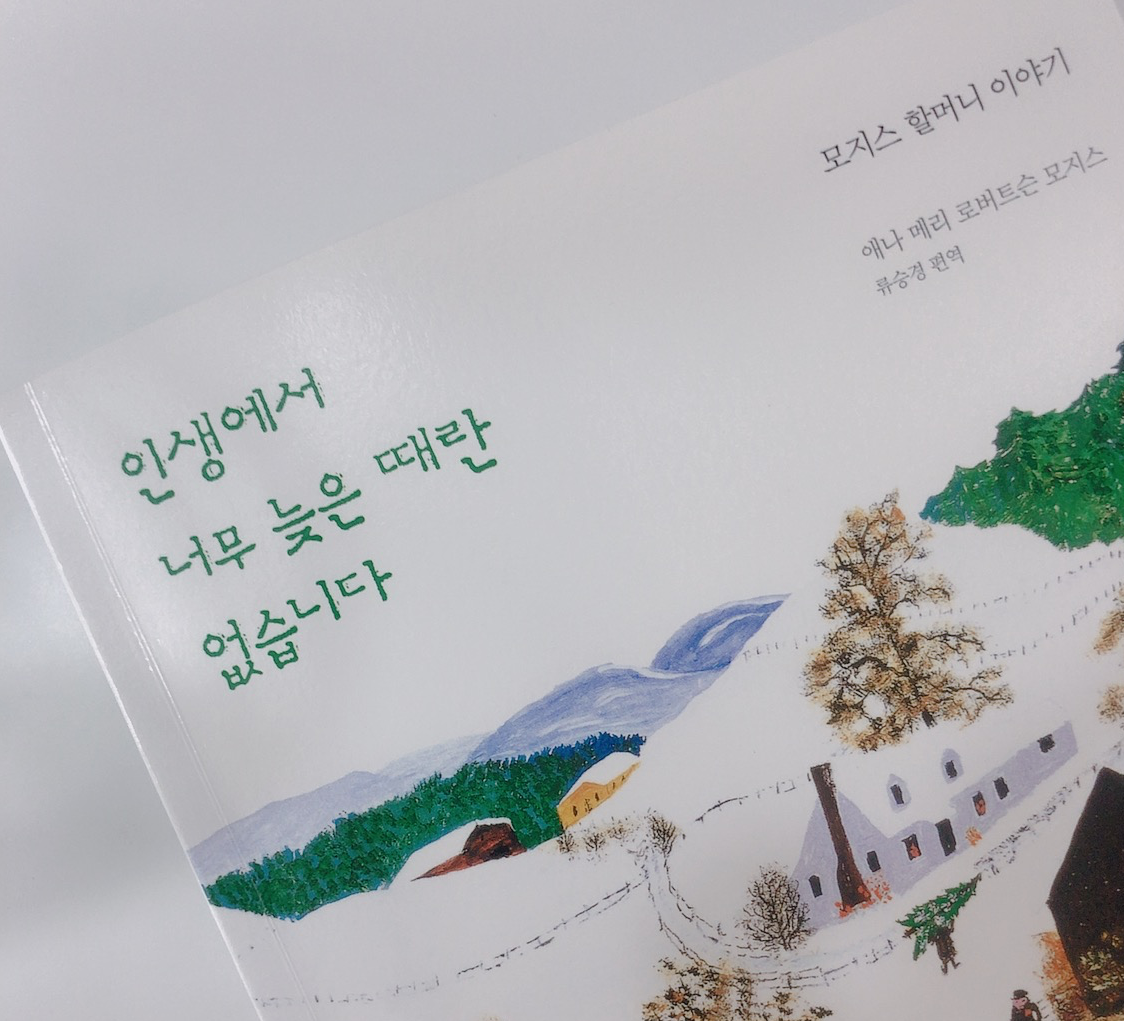 모지스 할머니 이야기
애나 메리 로버트슨 모지스
류승경 편역
인생에서
너무 늦은 때란
없습니다